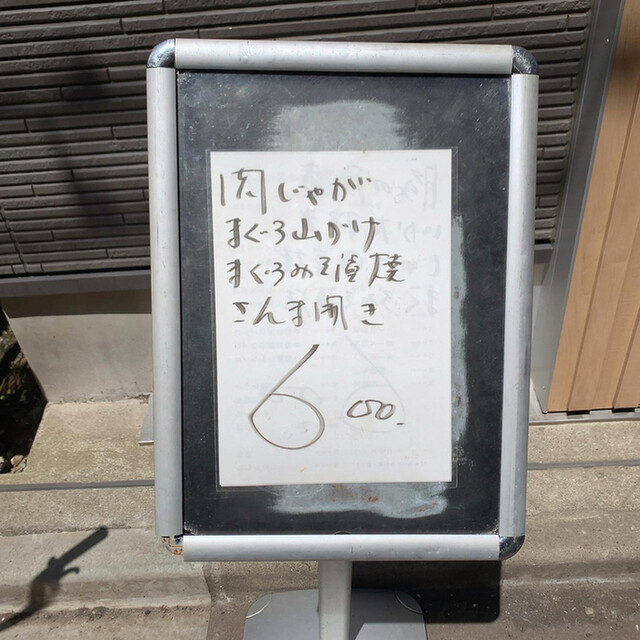 肉じゃが
まぐろ山かけ
まぐろみそ漬焼
さんま開き
600.